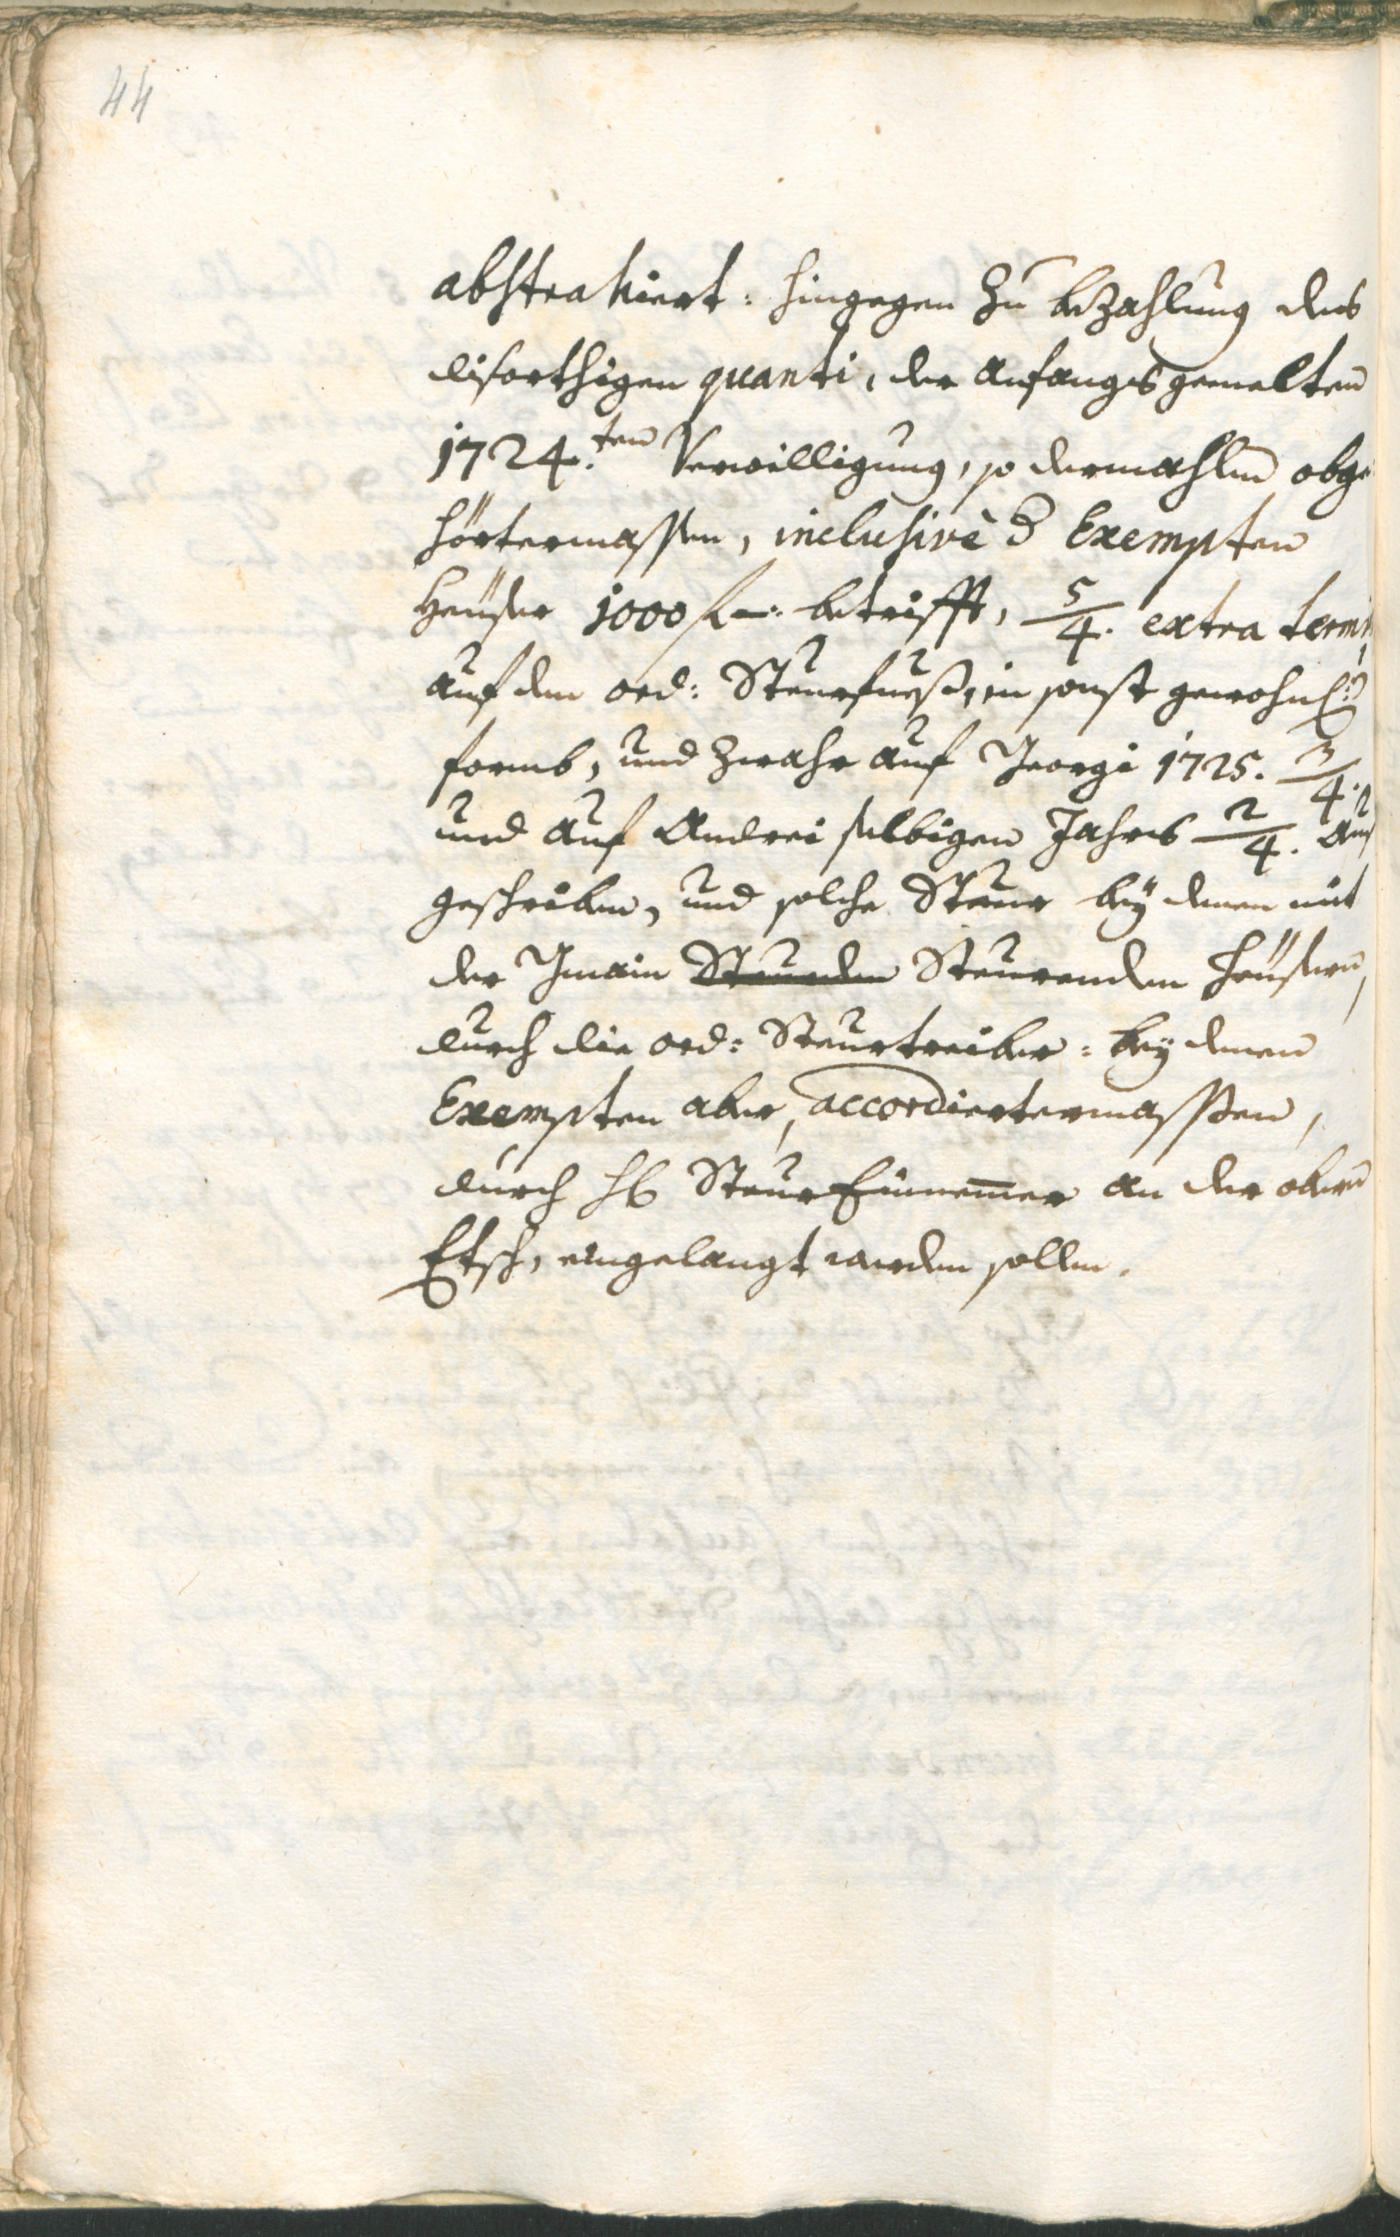 44
abstrahiert: hingegen zu bezahlung des
disorthigen quanti, der Anfangs gemelten
1724.ten Verwilligung, so dermahlen obge
hörtermassen, inclusivè d Exempten
Heüser 1000 f –: betrifft, 5/4. extra termi
auf den ord: Steurfuess, in sonst gewohnl:r
formb, und zwahr auf Georgi 1725. 3/4.
und auf Andrei selbigen Jahrs 2/4. aus
geschriben, und solche Steur bey denen mit
der Gmain Steurenden Steurenden Heüsern,
durch die ord: Steurtreiber: bey denen
Exempten aber, accordiertermassen,
durch H: Steur Einnemer an der obern
Etsch, eingelangt werden sollen.